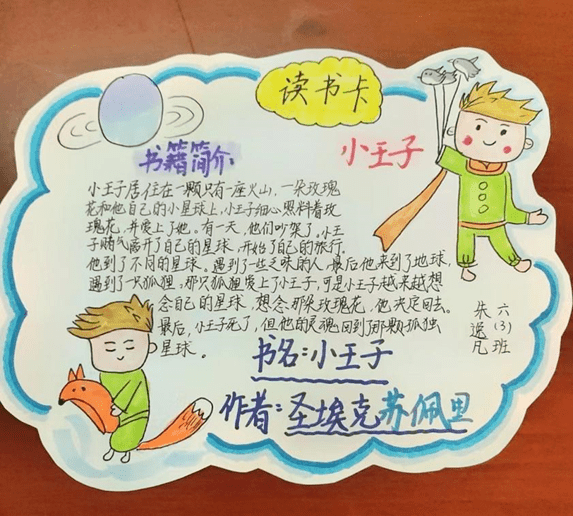 读书卡
小王子
书籍简介
小王子居住在一颗只有一座火山,一朵玫瑰
花和他自己的小星球上,小王子细心照料着玫
瑰花,并爱上了她。有一天,他们吵架了。小王
子赌气离开了自己的星球,开始了自己的旅行,
他到了不同的星球。遇到了一些乏味的人,最后他来到了地球,
遇到了一只狐狸,那只狐狸爱上了小王子,可是小王子越来越想
念自己的星球,想念那朵玫瑰花,他决定回去。
最后,小王子死了,但他的灵魂回到了那颗孤独
星球。
六(3)班
朱逸凡
书名:小王子
作者:圣埃克苏佩里